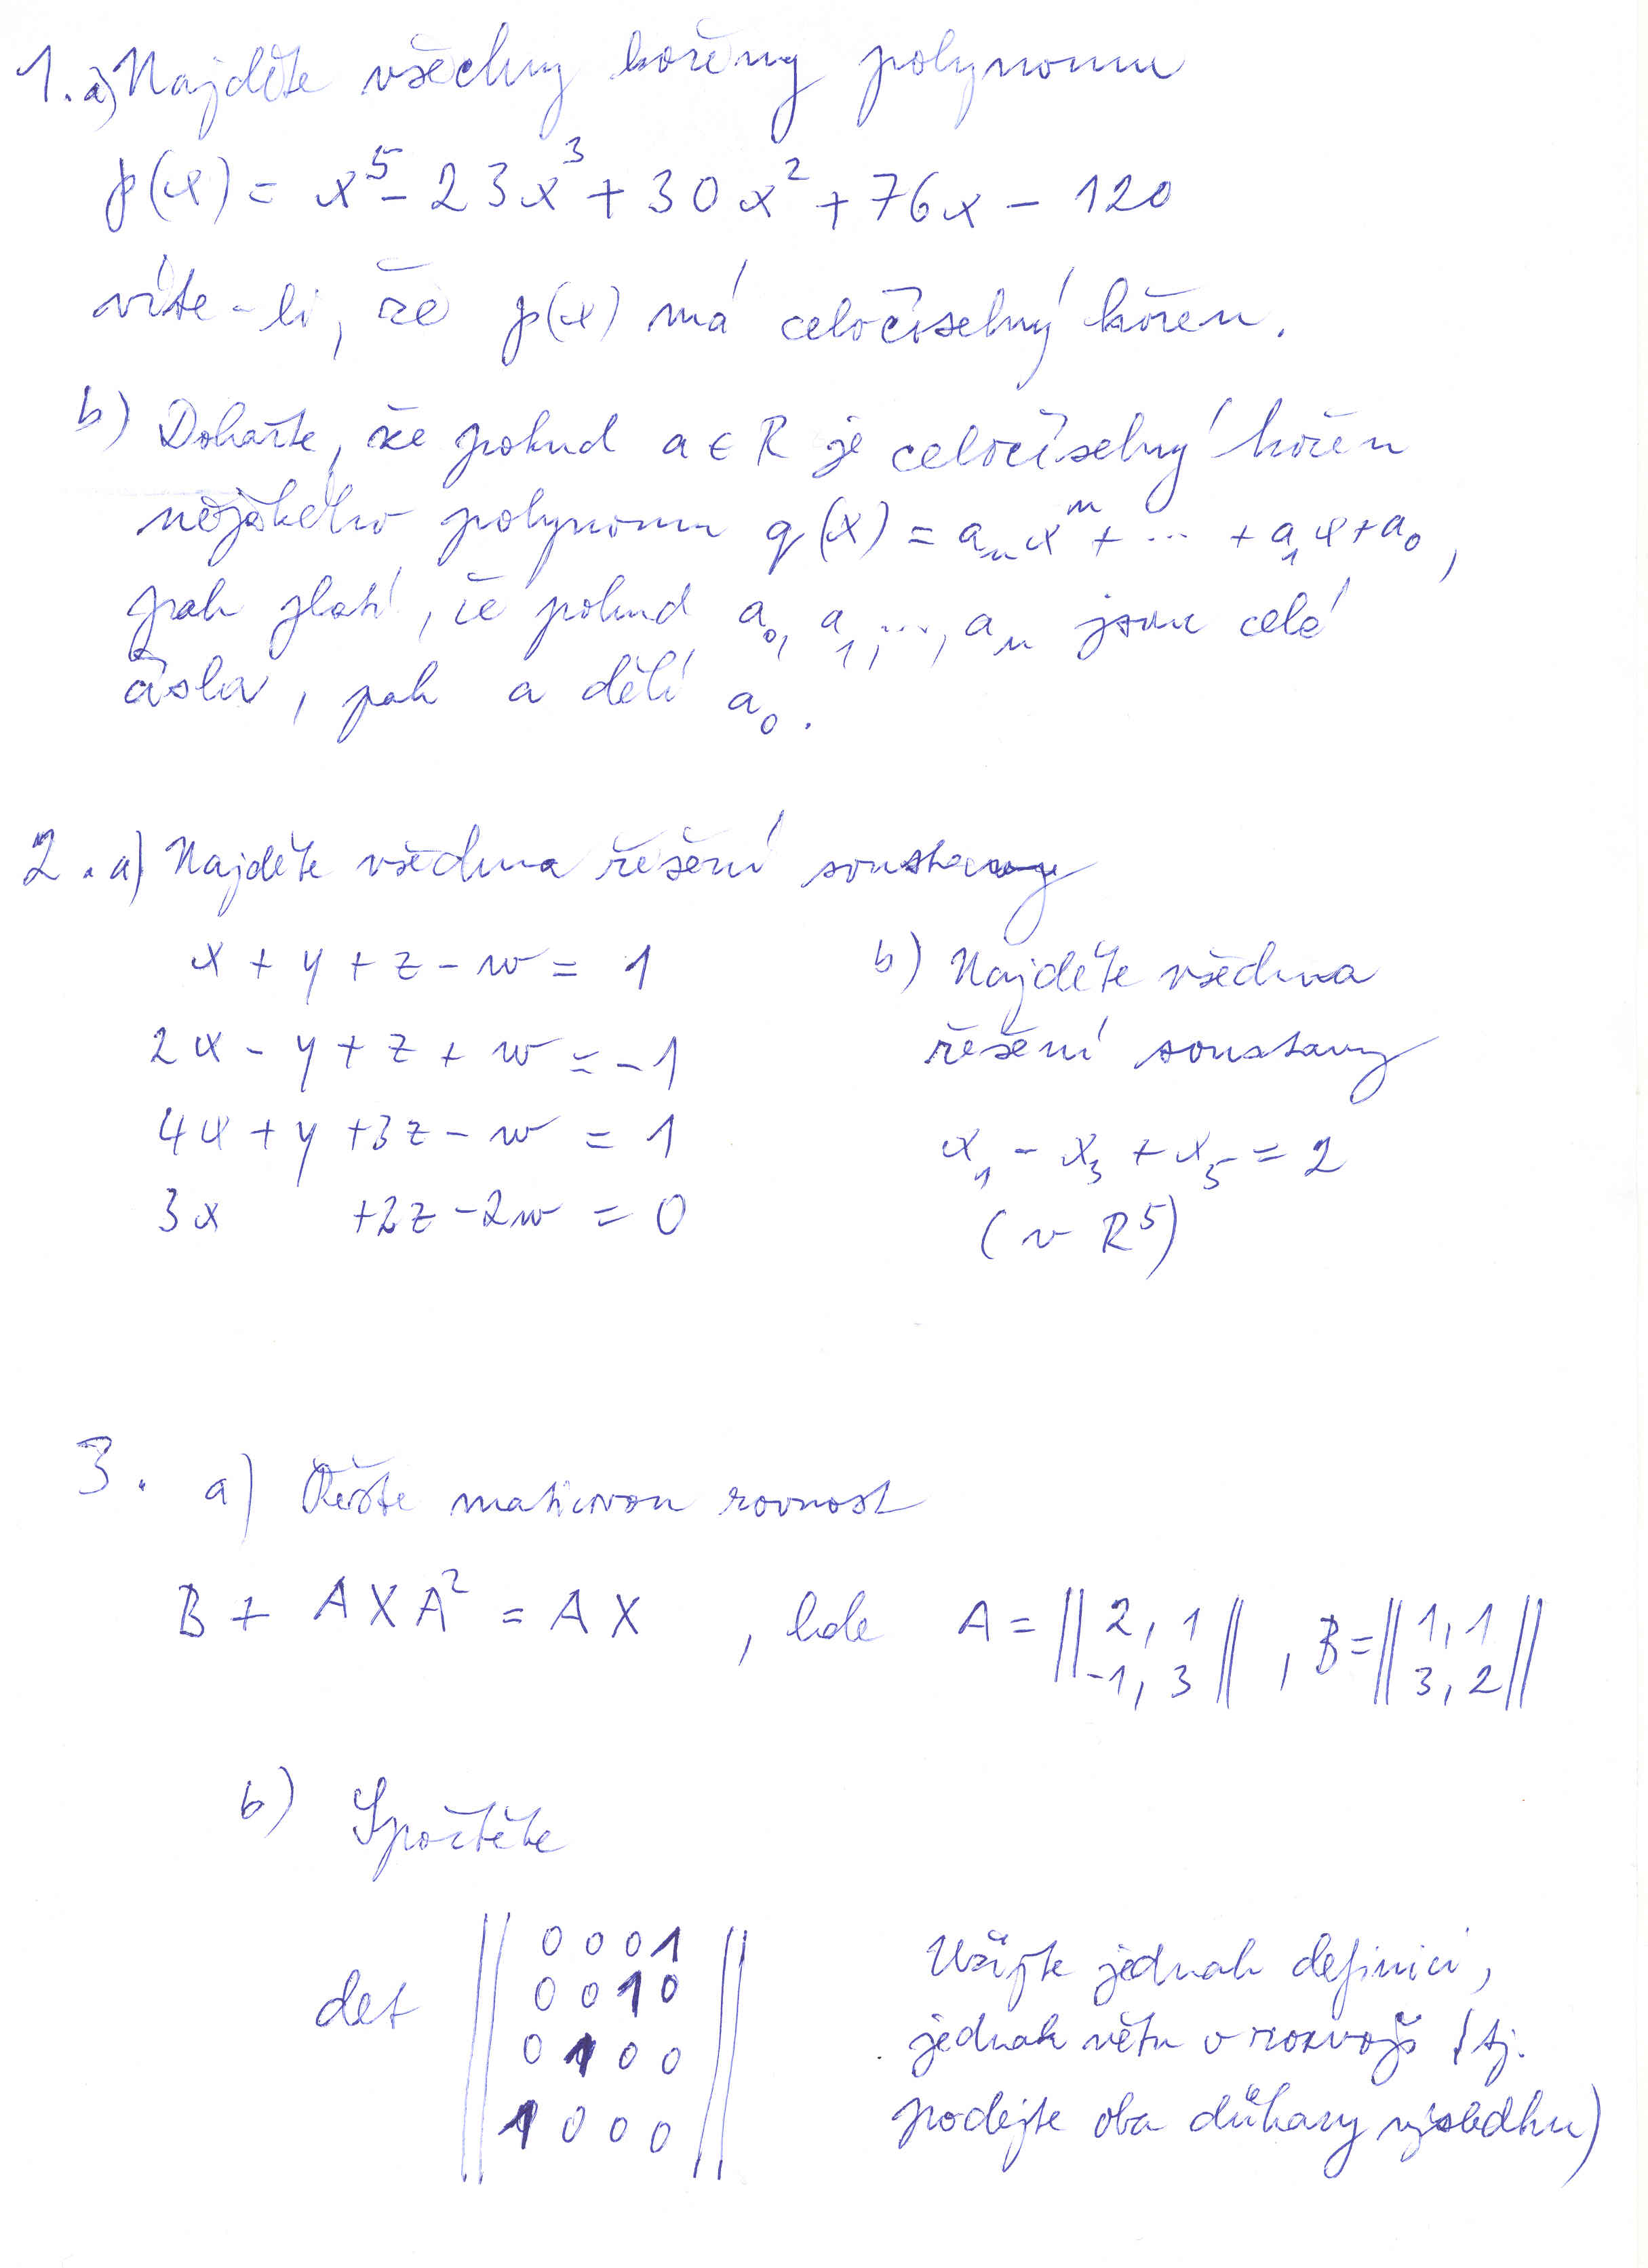 1. a) Najděte všechny kořeny polynomu
p(x) = x⁵ - 23x³ + 30x² + 76x - 120
víte-li, že p(x) má celočíselný kořen.
b) Dokažte, že pokud a ∈ R je celočíselný kořen
nějakého polynomu q(x) = aₙxⁿ + ... + a₁x + a₀,
pak platí, že pokud a₀, a₁, ..., aₙ jsou celé
čísla, pak a dělí a₀.
2. a) Najděte všechna řešení soustavy
x + y + z - w = 1
2x - y + z + w = -1
4x + y + 3z - w = 1
3x + 2z - 2w = 0
b) Najděte všechna
řešení soustavy
x₁ - x₃ + x₅ = 2
(v R⁵)
3. a) Řešte maticovou rovnost
B + A X A² = A X , kde A = || 2, 1 || , B = || 1, 1 ||
-1, 3 3, 2
b) Spočtěte
det || 0 0 0 1 ||
0 0 1 0
0 1 0 0
1 0 0 0
Užijte jednak definici,
jednak větu o rozvoji (tj.
podejte oba důkazy výsledku)